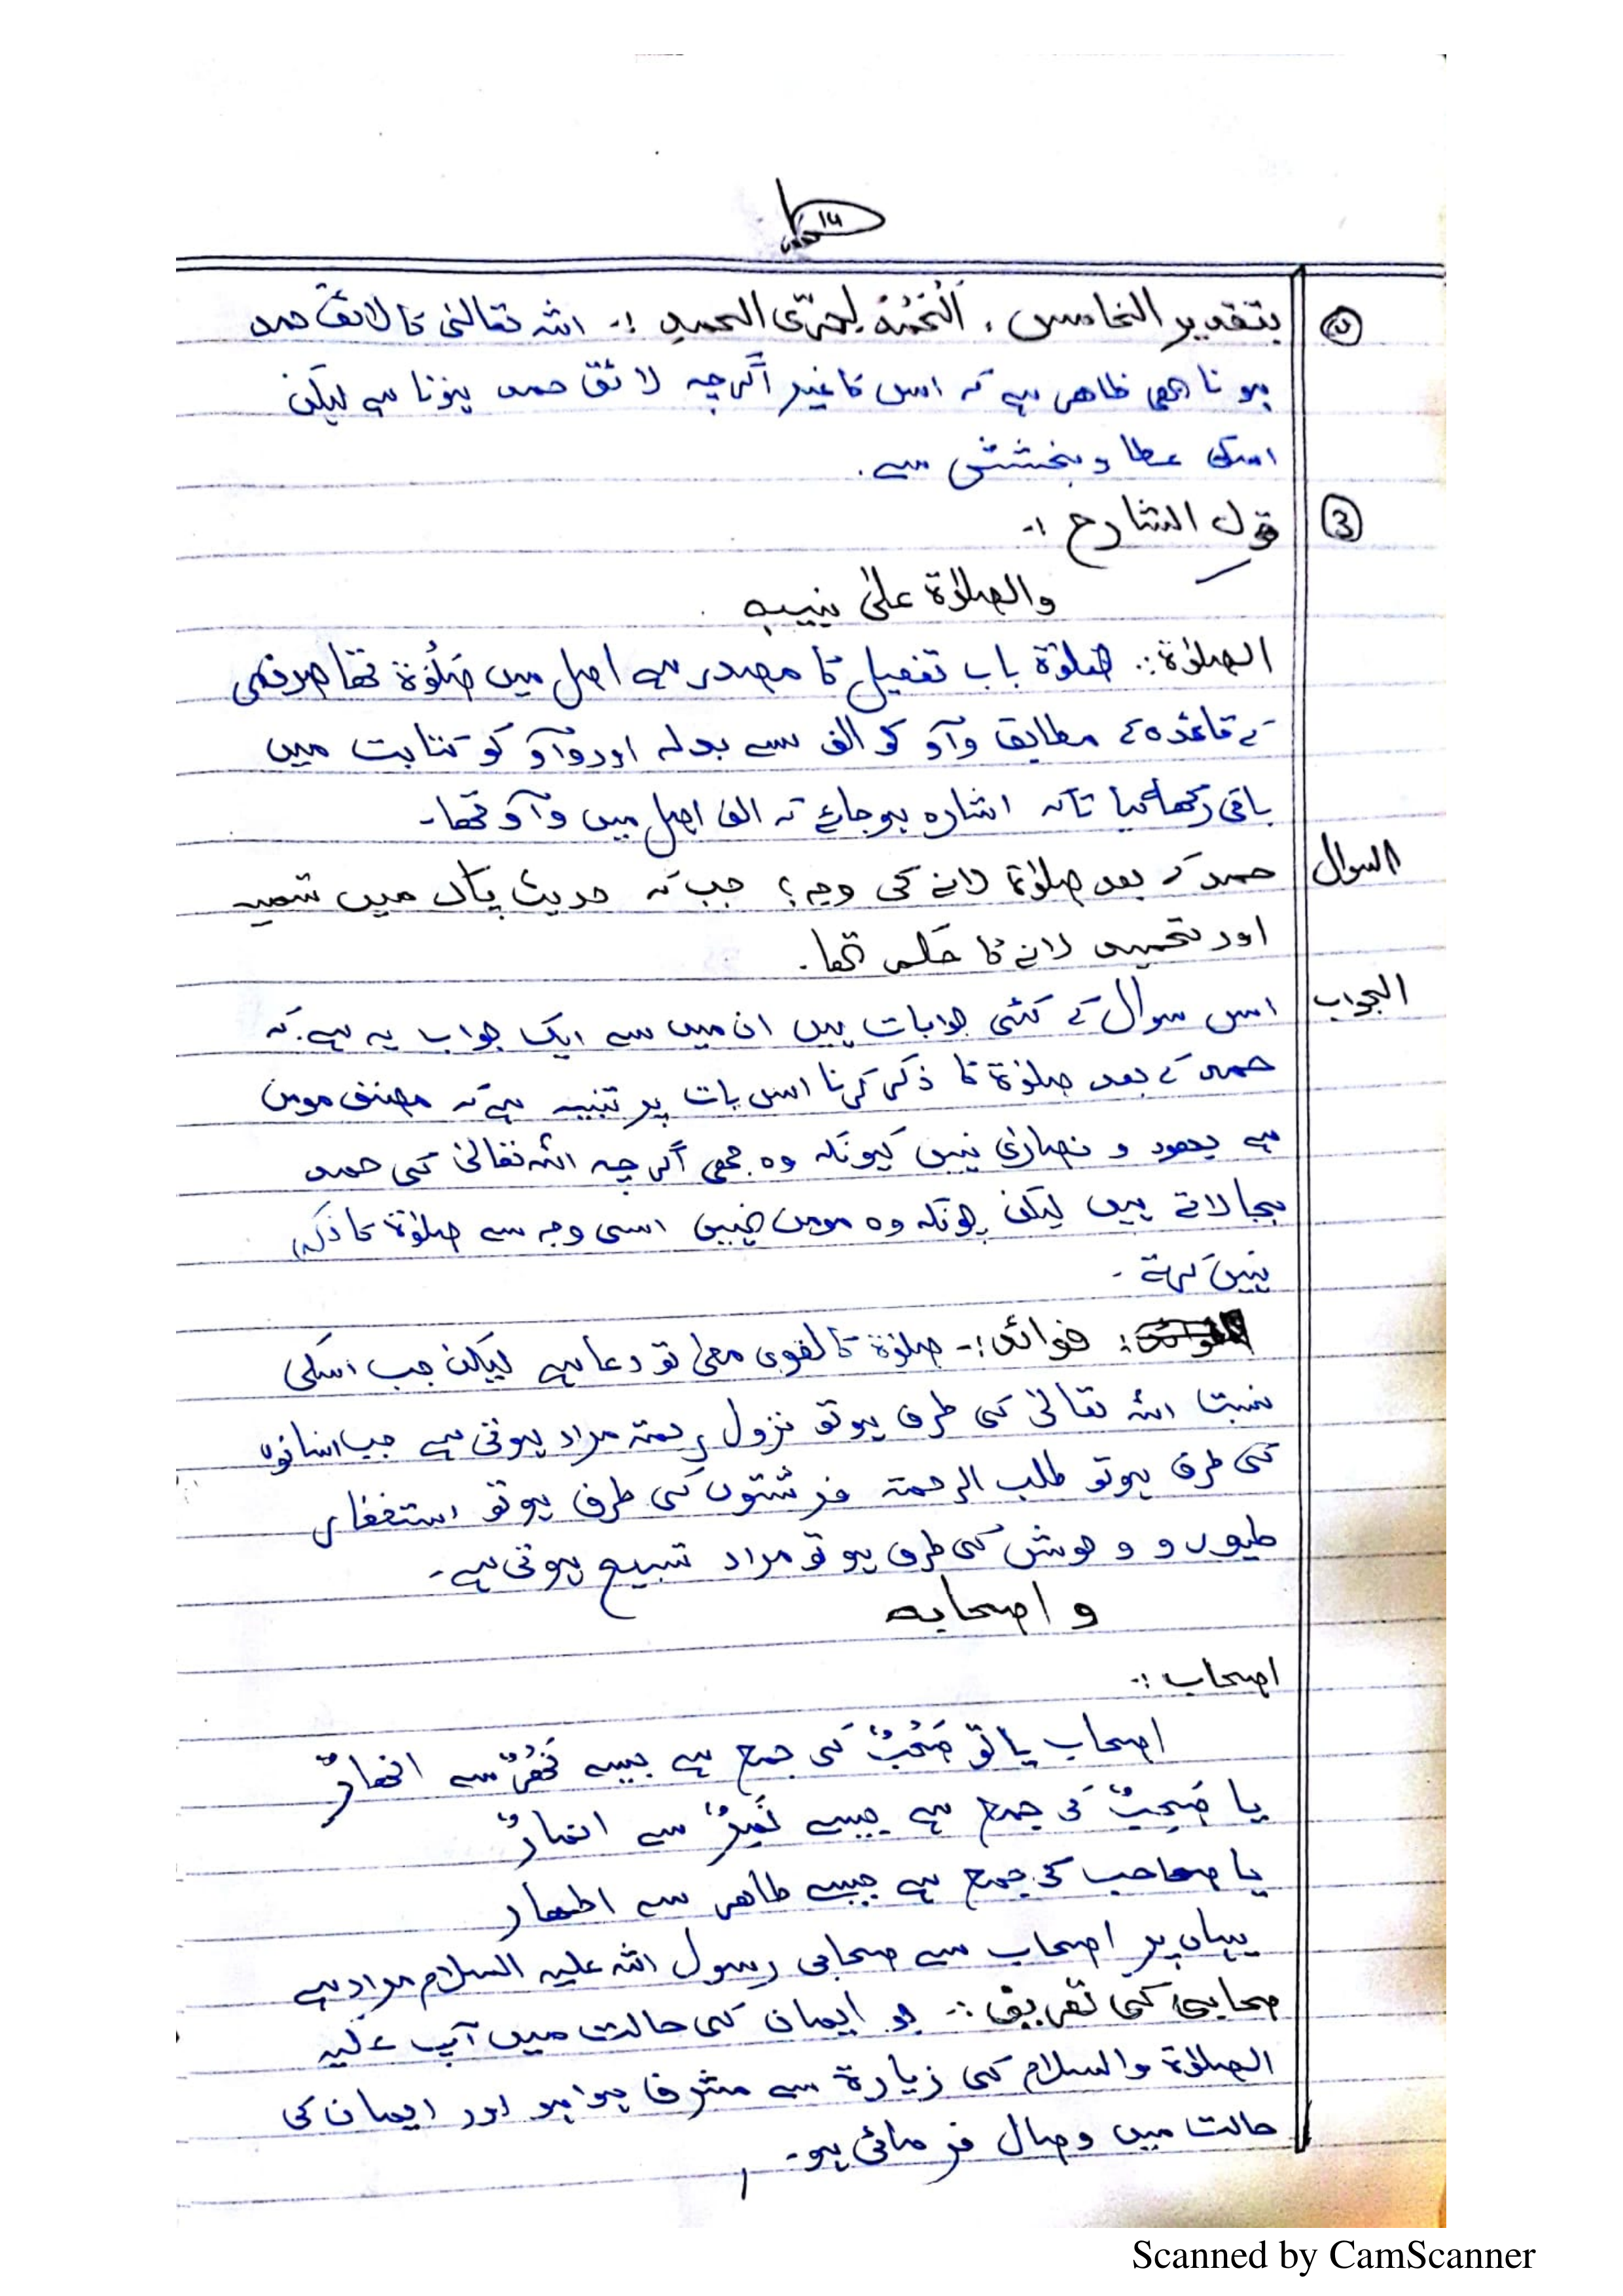 ۱۴
۵ بتقدیر الخامس ، لِحَرِیِّ الحمدِ :۔ اللہ تعالیٰ کا لائق حمد
ہونا بھی ظاھر ہے کہ اس کا غیر اگرچہ لائق حمد ہونا ہے لیکن
اسکی عطا و بخشش سے ۔
③ قول الشارح :۔
والصلوٰۃ علیٰ نبیہ
الصلوٰۃ :۔ صلوٰۃ باب تفعیل کا مصدر ہے اصل میں صَلَوَۃ تھا صرفی
کے قاعدہ کے مطابق واؤ کو الف سے بدلہ اور واؤ کو کتابت میں
باقی رکھا گیا تاکہ اشارہ ہو جائے کہ الف اصل میں واؤ تھا۔
السوال حمد کے بعد صلوٰۃ لانے کی وجہ ؟ جب کہ حدیث پاک میں تسمیہ
اور تحمید لانے کا حکم تھا ۔
الجواب اس سوال کے کئی جوابات ہیں ان میں سے ایک جواب یہ ہے کہ
حمد کے بعد صلوٰۃ کا ذکر کرنا اس بات پر تنبیہ ہے کہ مصنف مومن
ہے یھود و نصاریٰ نہیں کیونکہ وہ بھی اگرچہ اللہ تعالیٰ کی حمد
بجا لاتے ہیں لیکن چونکہ وہ مومن نہیں اسی وجہ سے صلوٰۃ کا ذکر
نہیں کرتے ۔
فوائد :۔ صلوٰۃ کا لغوی معنیٰ تو دعا ہے لیکن جب اسکی
نسبت اللہ تعالیٰ کی طرف ہو تو نزول رحمۃ مراد ہوتی ہے جب انسانوں
کی طرف ہو تو طلب الرحمۃ فرشتوں کی طرف ہو تو استغفار
طیور و وحوش کی طرف ہو تو مراد تسبیح ہوتی ہے۔
و اصحابہ
اصحاب :۔
اصحاب یا تو صَحْبٌ کی جمع ہے جیسے نَھْرٌ سے انھارٌ
یا صَحِبٌ کی جمع ہے جیسے نَمِرٌ سے انمارٌ
یا صاحب کی جمع ہے جیسے طاھر سے اطھار
یہاں پر اصحاب سے صحابی رسول اللہ علیہ السلام مراد ہے
صحابی کی تعریف :۔ جو ایمان کی حالت میں آپ علیہ
الصلوٰۃ والسلام کی زیارۃ سے مشرف ہوا ہو اور ایمان کی
حالت میں وصال فرمائی ہو۔
Scanned by CamScanner